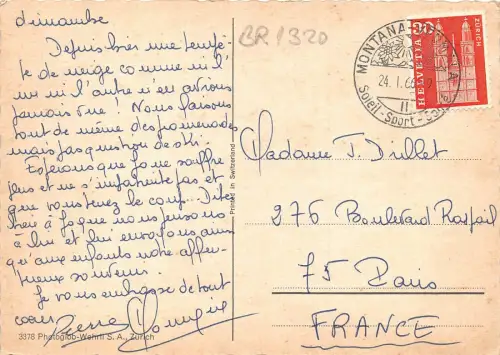 dimanche
Depuis hier une tempê-
te de neige comme ni l'
un ni l'autre n'en avions
jamais vue ! Nous faisons
tout de même des promenades
mais pas question de ski.
Espérons que Jo ne souffre
plus et ne s'impatiente pas et
que vous tenez le coup. Dites
à Jo que nous pensons
à lui et lui envoyons ainsi
qu'aux enfants notre affec-
tueux souvenir.
Je vous embrasse de tout
coeur
Pierre
3378 Photoglob-Wehrli S. A., Zürich
Printed in Switzerland
BR 1320
MONTANA
24.1.66
Soleil - Sport
II
HELVETIA
30
ZÜRICH
Madame J. Dillet
276 Boulevard Raspail
75 Paris
FRANCE